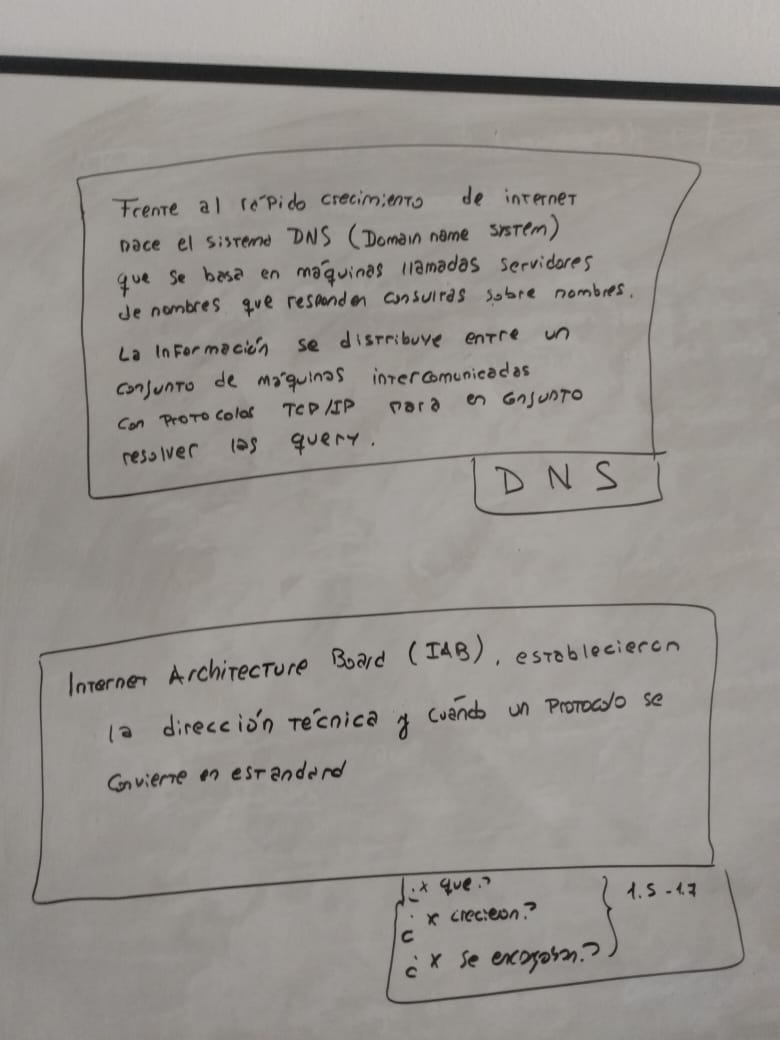 Frente al rápido crecimiento de internet
nace el sistema DNS (Domain name system)
que se basa en máquinas llamadas servidores
de nombres que responden consultas sobre nombres.
La Información se distribuye entre un
conjunto de máquinas intercomunicadas
con Protocolos TCP/IP para en conjunto
resolver las query.
DNS
Internet Architecture Board (IAB), establecieron
la dirección técnica y cuándo un Protocolo se
convierte en estandard
¿x que?
¿x crecieon?
¿x se
1.5-1.7